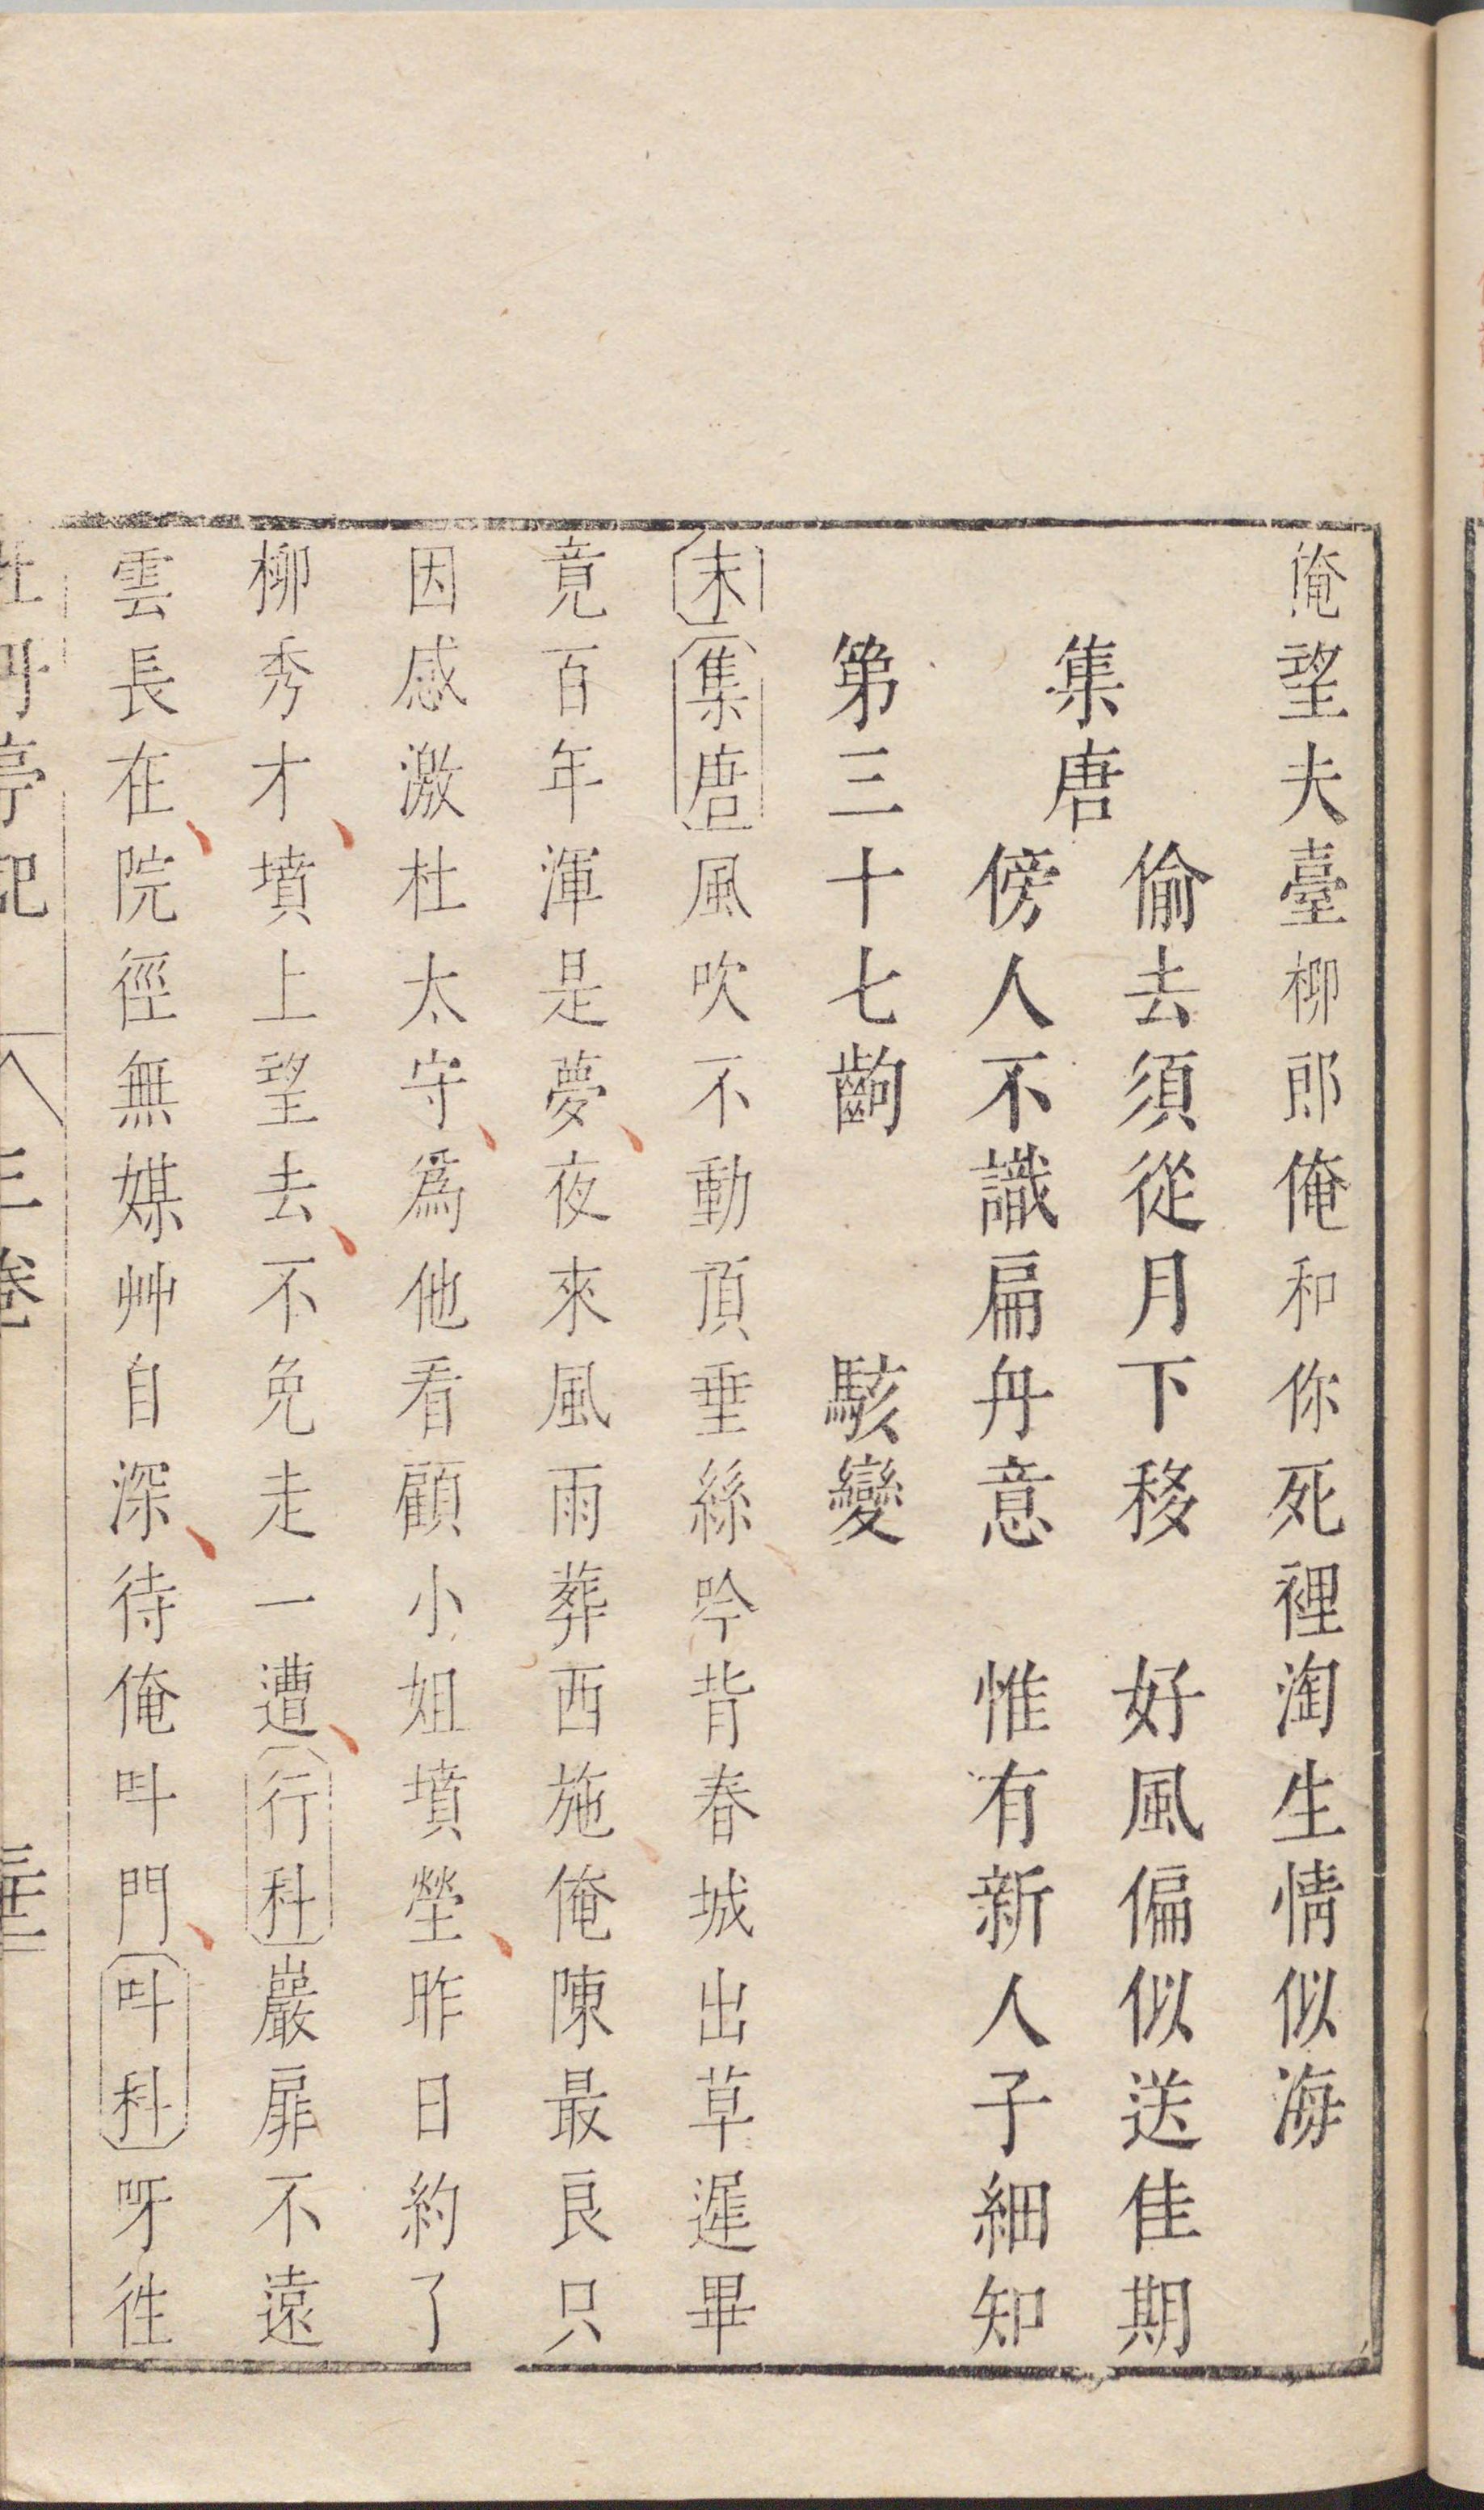 俺望夫臺柳郎俺和你死裡淘生情似海
集唐
偷去須從月下移　好風偏似送佳期
傍人不識扁舟意　惟有新人子細知
第三十七齣　駭變
末集唐風吹不動頂垂絲吟背春城出草遲畢
竟百年渾是夢夜來風雨葬西施俺陳最良只
因感激杜太守爲他看顧小姐墳塋昨日約了
柳秀才墳上望去不免走一遭行科巖扉不遠
雲長在院徑無媒艸自深待俺呌門呌科呀徃
牡丹亭記　三卷